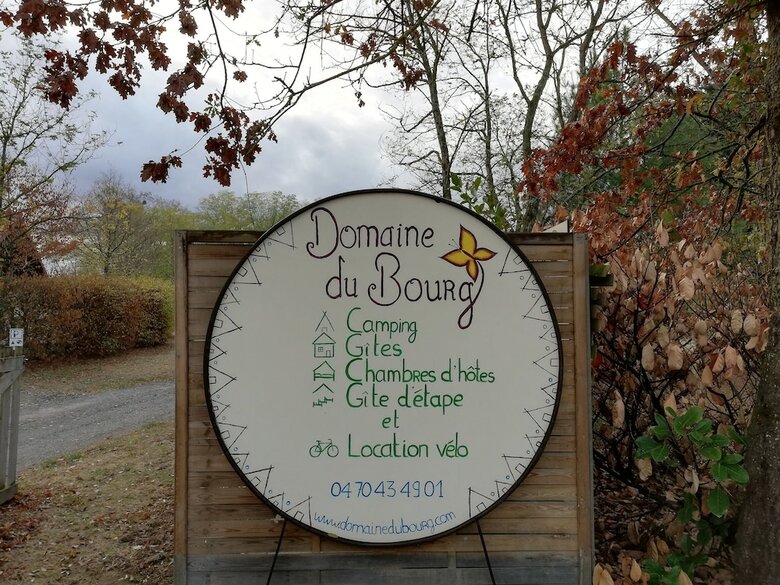 Domaine
du Bourg
Camping
Gîtes
Chambres d'hôtes
Gîte d'étape
et
Location vélo
04 70 43 49 01
www.domainedubourg.com
P